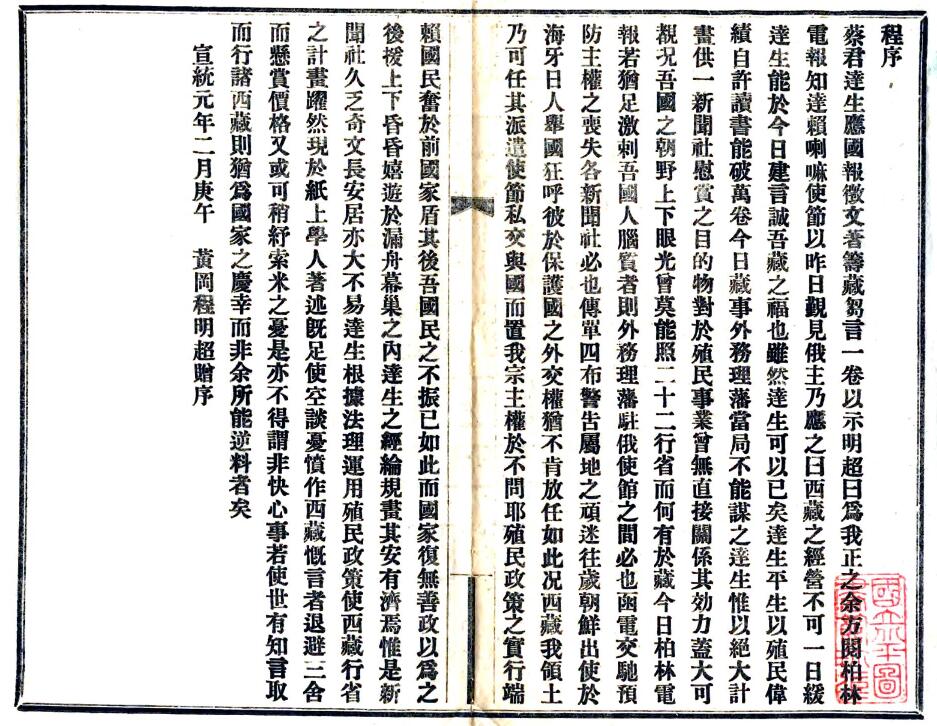 程序
蔡君達生應國報徵文著籌藏芻言一卷以示明超曰爲我正之余方閱柏林
電報知達賴喇嘛使節以昨日覲見俄主乃應之曰西藏之經營不可一日緩
達生能於今日建言誠吾藏之福也雖然達生可以已矣達生平生以殖民偉
績自許讀書能破萬卷今日藏事外務理藩當局不能謀之達生惟以絕大計
畫供一新聞社慰賞之目的物對於殖民事業曾無直接關係其効力蓋大可
覩況吾國之朝野上下眼光曾莫能照二十二行省而何有於藏今日柏林電
報若猶足激刺吾國人腦質者則外務理藩駐俄使館之間必也函電交馳預
防主權之喪失各新聞社必也傳單四布警告屬地之頑迷往歲朝鮮出使於
海牙日人舉國狂呼彼於保護國之外交權猶不肯放任如此况西藏我領土
乃可任其派遣使節私交與國而置我宗主權於不問耶殖民政策之實行端
賴國民奮於前國家盾其後吾國民之不振已如此而國家復無善政以爲之
後援上下昏昏嬉遊於漏舟幕巢之內達生之經綸規畫其安有濟焉惟是新
聞社久乏奇文長安居亦大不易達生根據法理運用殖民政策使西藏行省
之計畫躍然現於紙上學人著述旣足使空談憂憤作西藏慨言者退避三舍
而懸賞價格又或可稍紓索米之憂是亦不得謂非快心事若使世有知言取
而行諸西藏則猶爲國家之慶幸而非余所能逆料者矣
宣統元年二月庚午　黃岡程明超贈序